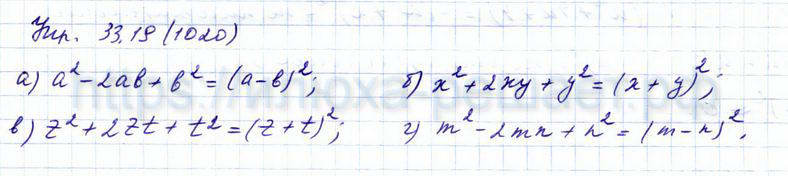 Упр. 33.19 (1020)
а) a² - 2ab + b² = (a-b)²; б) x² + 2xy + y² = (x + y)²;
в) z² + 2zt + t² = (z + t)²; г) m² - 2mn + n² = (m - n)².